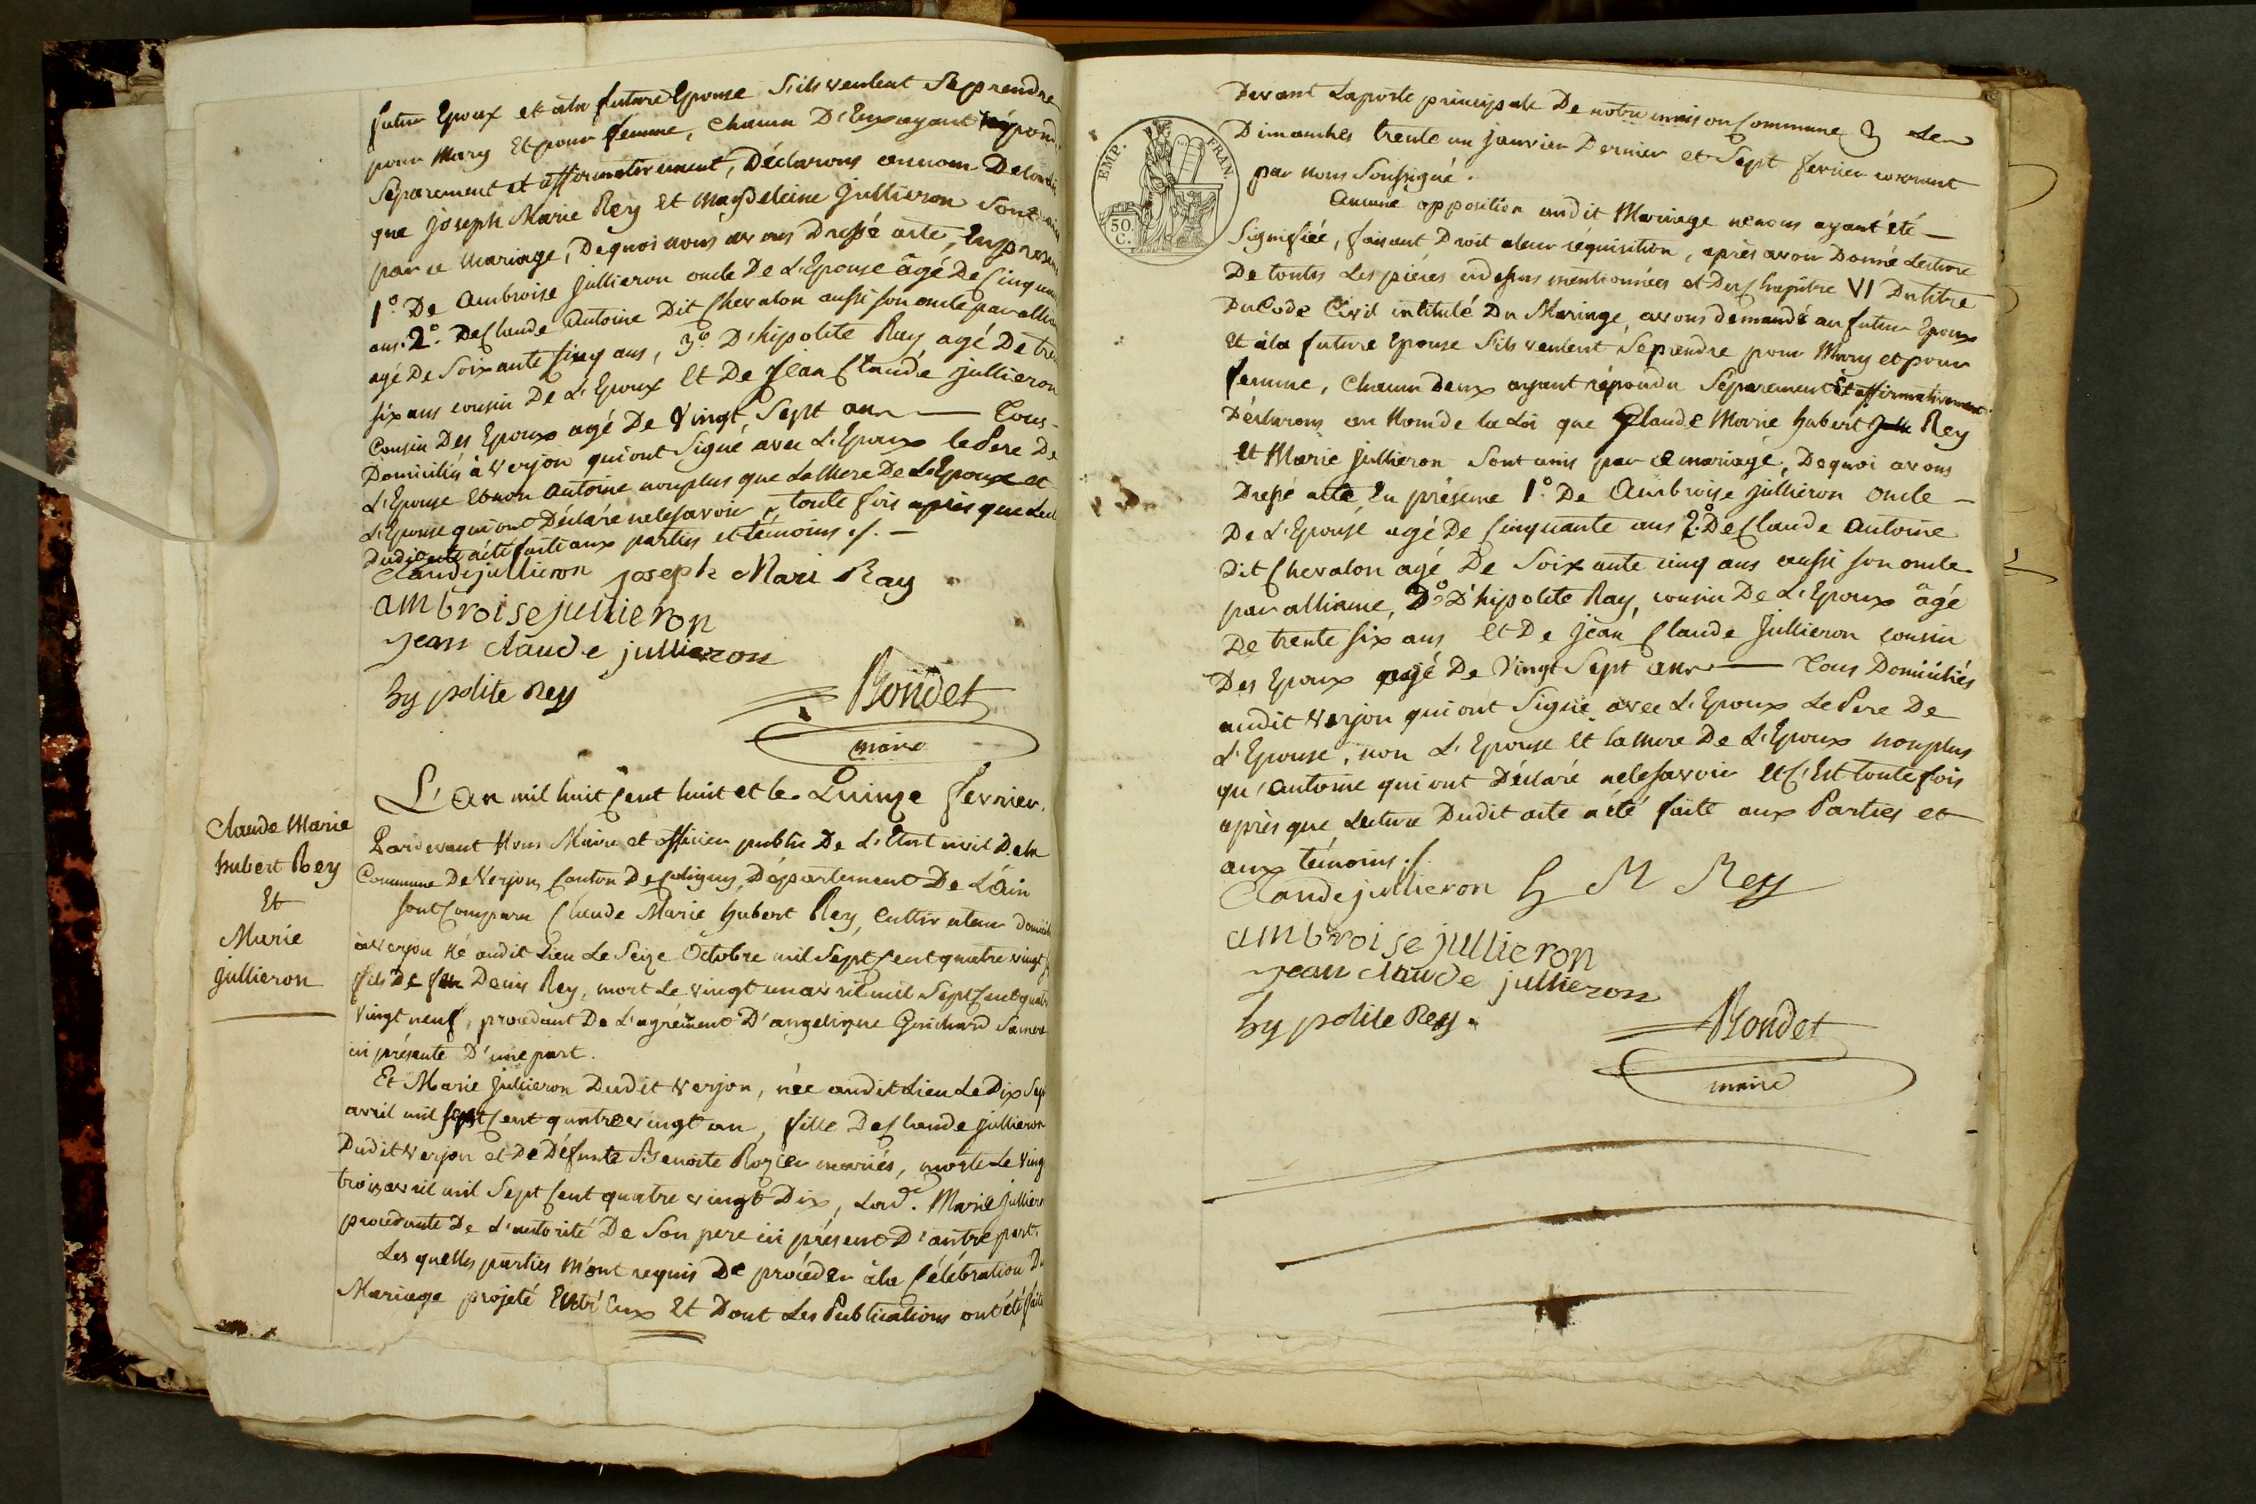 futur Epoux et à la future Epouse S'ils veulent Se prendre
pour Mary Et pour femme, Chacun D'Eux ayant répondu
Séparement et affirmativement, Déclarons au nom De la loi
que Joseph Marie Rey et Magdeleine Jullieron Sont unis
par ce Mariage, De quoi nous avons Dressé acte, En presence
1.° De Ambroise Jullieron oncle De L'Epouse âgé De Cinquante
ans. 2.° De Claude Antoine Dit Chevalon aussi son oncle par alliance
agé De Soixante Cinq ans, 3.° D'hipolite Ray agé De trente
six ans cousin De L'Epoux Et De Jean Claude Jullieron
Cousin Des Epoux agé De Vingt Sept ans — Tous
Domiciliés à Verjon qui ont Signé avec L'Epoux le Pere De
L'Epouse et non Antoine non plus que La Mere De L'Epoux et
L'Epouse qui ont Déclaré ne le savoir, toute fois après que Lecture
Dudit acte a été faite aux parties et témoins ./. —
Claude jullieron joseph Mari Ray
ambroise jullieron
jean claude jullieron
hy polite Rey
Rondet
maire
Claude Marie
hubert Rey
Et
Marie
Jullieron
L'An mil huit Cent huit et le Quinze fevrier.
Pardevant Nous Maire et officier public De L'Etat civil De la
Commune De Verjon, Canton De Coligny, Département De L'ain
Sont Comparu Claude Marie hubert Rey, Cultivateur domicilié
à Verjon Né audit Lieu Le Seize Octobre mil Sept Cent quatre vingt
fils De feu Denis Rey, mort Le vingt un avril mil Sept Cent quatre
Vingt neuf, procédant De L'agrément D'angelique Guichard Sa mere
ici présente D'une part.
Et Marie Jullieron Dudit Verjon, née audit Lieu Le Dix Sept
avril mil Sept Cent quatre vingt un, fille De Claude Jullieron
Dudit Verjon et De Défunte Benoite Rozier mariés, morte Le Vingt
trois avril mil Sept Cent quatre vingt Dix, Lad.e Marie Jullieron
procédante De L'autorité De Son pere ici présent D'autre part.
Les quelles parties M'ont requis De procéder à la Célébration Du
Mariage projeté Entr'Eux Et Dont Les Publications ont été faites
EMP. FRAN.
50 C.
Devant La porte principale De notre maison Commune, Les
Dimanches trente un Janvier Dernier et Sept fevrier courrant
par nous Soussigné.
Aucune opposition audit Mariage ne nous ayant été —
Signifiée, faisant Droit à leur réquisition, après avoir Donné Lecture
De toutes Les pièces cidessus mentionnées et Du Chapitre VI Du titre
Du Code Civil intitulé Du Mariage, avons demandé au futur Epoux
Et à la future Epouse S'ils veulent Se prendre pour Mary et pour
femme, Chacun deux ayant répondu Séparement Et affirmativement.
Déclarons au Nom de la Loi que Claude Marie hubert Rey
et Marie Jullieron Sont unis par ce mariage, De quoi avons
Dressé acte En présence 1.° De Ambroise Jullieron oncle —
De L'Epouse agé De Cinquante ans 2.° De Claude Antoine
Dit Chevalon agé De Soixante cinq ans aussi son oncle
par alliance, 3.° D'hipolite Ray, cousin De L'Epoux âgé
De trente Six ans et De Jean Claude Jullieron cousin
Des Epoux agé De Vingt Sept ans — Tous Domiciliés
audit Verjon qui ont Signé avec L'Epoux Le Pere De
L'Epouse, non L'Epouse et la Mere De L'Epoux non plus
qu'Antoine qui ont Déclaré ne le savoir et C'Est toute fois
après que Lecture Dudit acte a été faite aux Parties et
aux témoins ./.
Claude jullieron h M Rey
ambroise jullieron
jean claude jullieron
hy polite Rey.
Rondet
maire